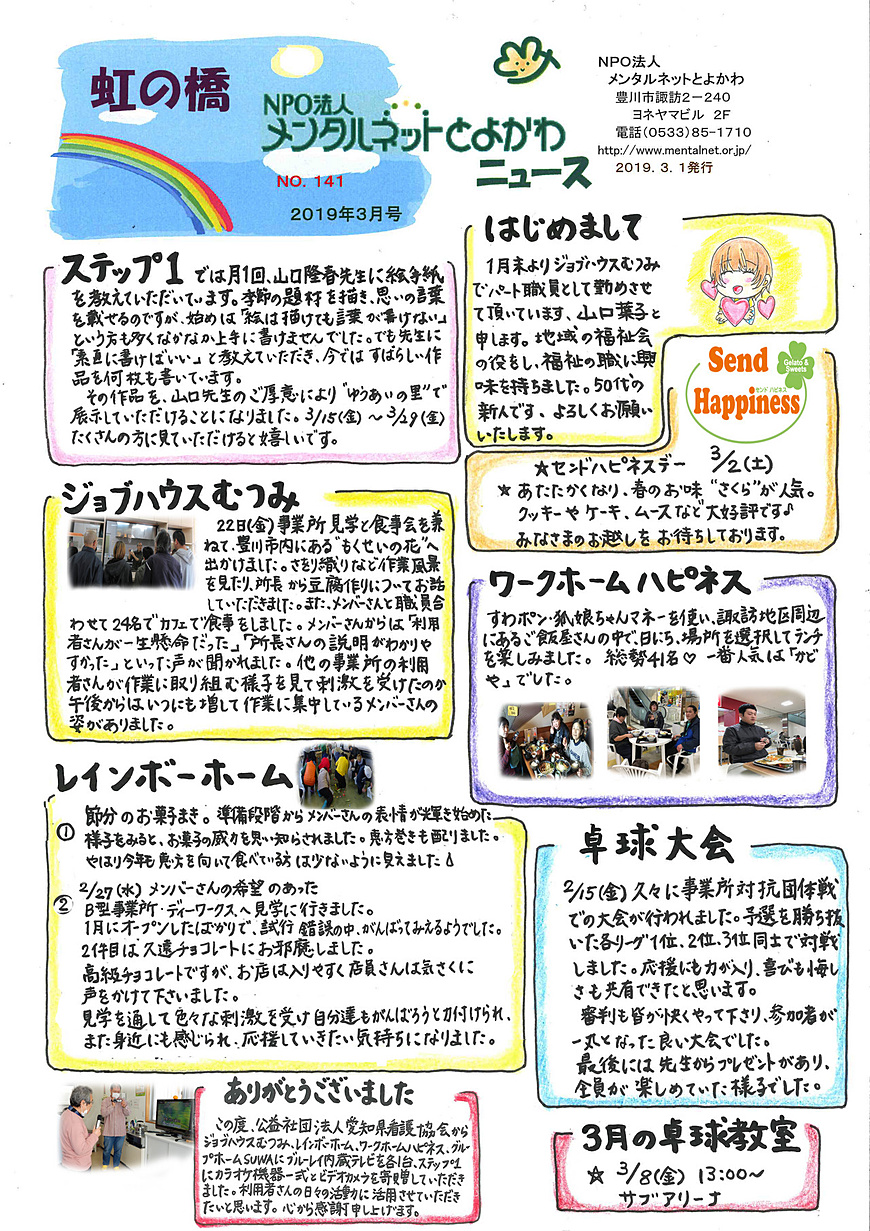 虹の橋
NPO法人
メンタルネットとよかわ
ニュース
NO. 141
2019年3月号
NPO法人
メンタルネットとよかわ
豊川市諏訪2－240
ヨネヤマビル 2F
電話(0533)85-1710
http://www.mentalnet.or.jp/
2019. 3. 1発行
ステップ1 では月1回、山口隆春先生に絵手紙
を教えていただいています。季節の題材を描き、思いの言葉
を載せるのですが、始めは「絵は描けても言葉が書けない」
という方も多くなかなか上手に書けませんでした。でも先生に
「素直に書けばいい」と教えていただき、今ではすばらしい作
品を何枚も書いています。
その作品を、山口先生のご厚意により“ゆうあいの里”で
展示していただけることになりました。3/15(金)～3/29(金)
たくさんの方に見ていただけると嬉しいです。
はじめまして
1月末よりジョブハウスむつみ
でパート職員として勤めさせ
て頂いています、山口葉子と
申します。地域の福祉会
の役をし、福祉の職に興
味を持ちました。50代の
新人です、よろしくお願い
いたします。
Send
Happiness
Gelato &
Sweets
センド ハピネス
★センドハピネスデー 3/2(土)
★あたたかくなり、春のお味“さくら”が人気。
クッキーやケーキ、ムースなど大好評です♪
みなさまのお越しをお待ちしております。
ジョブハウスむつみ
22日(金)事業所見学と食事会を兼
ねて、豊川市内にある“もくせいの花”へ
出かけました。さをり織りなど作業風景
を見たり、所長から豆腐作りについてお話
していただきました。また、メンバーさんと職員合
わせて24名でカフェで食事をしました。メンバーさんからは「利用
者さんが一生懸命だった」「所長さんの説明がわかりや
すかった」といった声が聞かれました。他の事業所の利用
者さんが作業に取り組む様子を見て刺激を受けたのか
午後からはいつにも増して作業に集中しているメンバーさんの
姿がありました。
ワークホームハピネス
すわポン・狐娘ちゃんマネーを使い、諏訪地区周辺
にあるご飯屋さんの中で、日にち、場所を選択してランチ
を楽しみました。 総勢41名♡ 一番人気は「かど
や」でした。
レインボーホーム
① 節分のお菓子まき。準備段階からメンバーさんの表情が輝き始めた
様子をみると、お菓子の威力を思い知らされました。恵方巻きも配りました。
やはり今年も恵方を向いて食べている方は少ないように見えました
② 2/27(水)メンバーさんの希望のあった
B型事業所・ディーワークス、へ見学に行きました。
1月にオープンしたばかりで、試行錯誤の中、がんばってみえるようでした。
2件目は久遠チョコレートにお邪魔しました。
高級チョコレートですが、お店は入りやすく店員さんは気さくに
声をかけて下さいました。
見学を通して色々な刺激を受け自分達もがんばろうと力付けられ、
また身近にも感じられ、応援していきたい気持ちになりました。
卓球大会
2/15(金)久々に事業所対抗団体戦
での大会が行われました。予選を勝ち抜
いた各リーグ1位、2位、3位同士で対戦
しました。応援にも力が入り、喜びも悔し
さも共有できたと思います。
審判も皆が快くやって下さり、参加者が
一丸となった良い大会でした。
最後には先生からプレゼントがあり、
全員が楽しめていた様子でした。
ありがとうございました
この度、公益社団法人愛知県看護協会から
ジョブハウスむつみ、レインボーホーム、ワークホームハピネス、グルー
プホームSUWAにブルーレイ内蔵テレビを各1台、ステップ1
にカラオケ機器一式とビデオカメラを寄贈していただき
ました。利用者さんの日々の活動に活用させていただき
たいと思います。心から感謝申し上げます。
3月の卓球教室
☆ 3/8(金) 13:00～
サブアリーナ